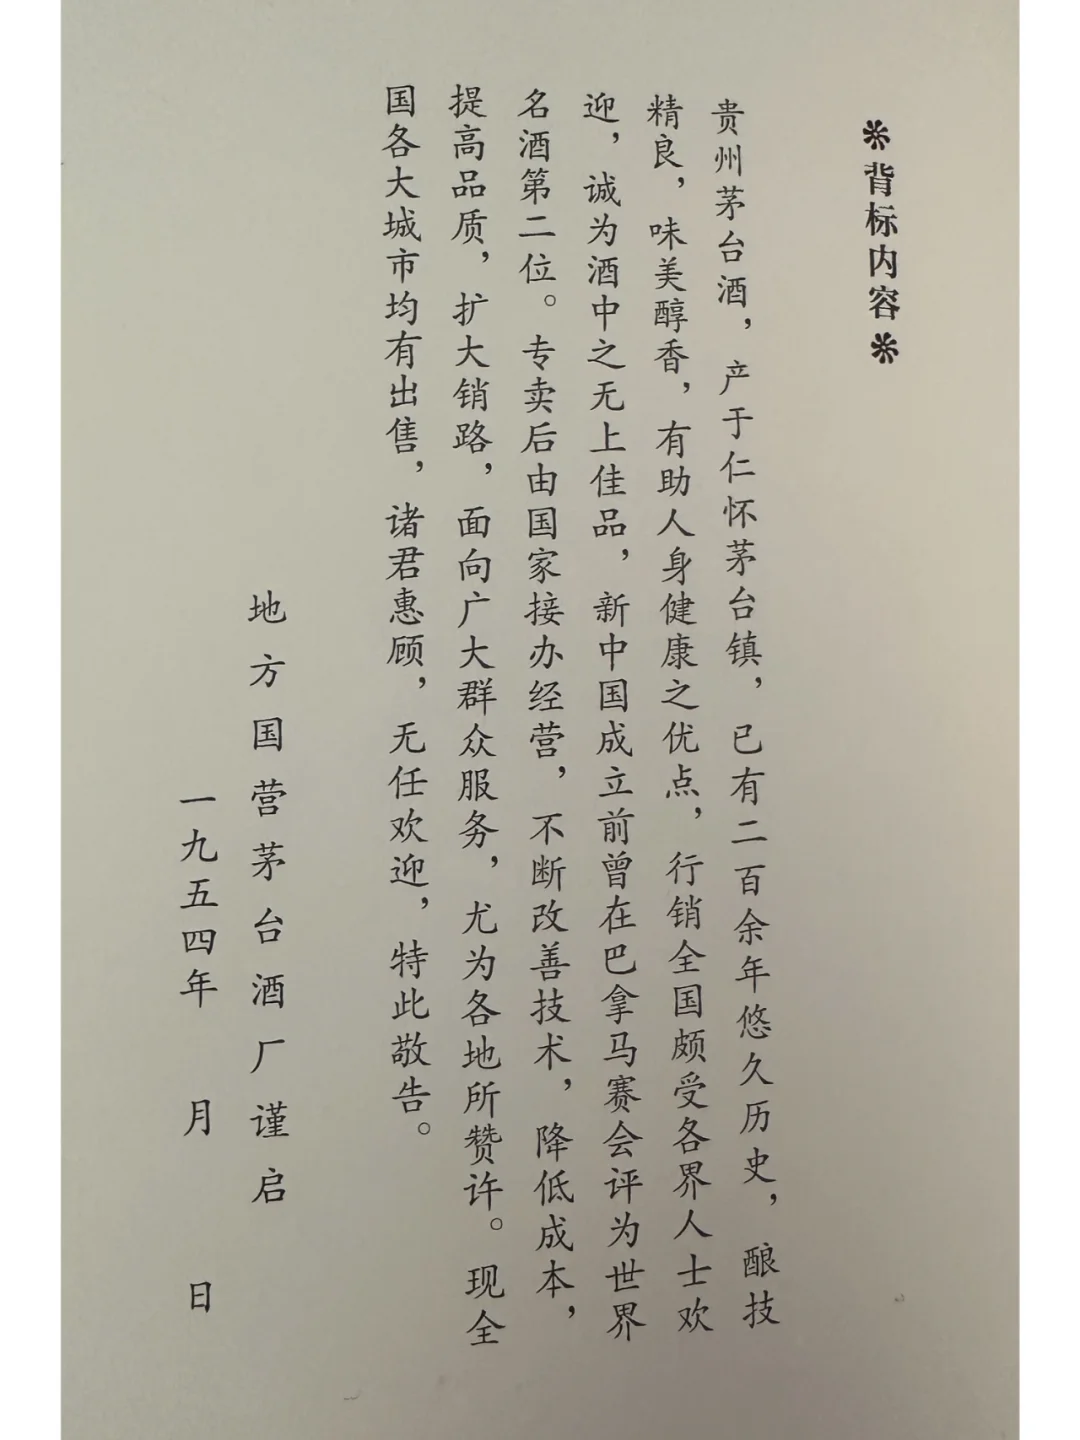 ※背标内容※
贵州茅台酒，产于仁怀茅台镇，已有二百余年悠久历史，酿技
精良，味美醇香，有助人身健康之优点，行销全国颇受各界人士欢
迎，诚为酒中之无上佳品，新中国成立前曾在巴拿马赛会评为世界
名酒第二位。专卖后由国家接办经营，不断改善技术，降低成本，
提高品质，扩大销路，面向广大群众服务，尤为各地所赞许。现全
国各大城市均有出售，诸君惠顾，无任欢迎，特此敬告。
地方国营茅台酒厂谨启
一九五四年 月 日